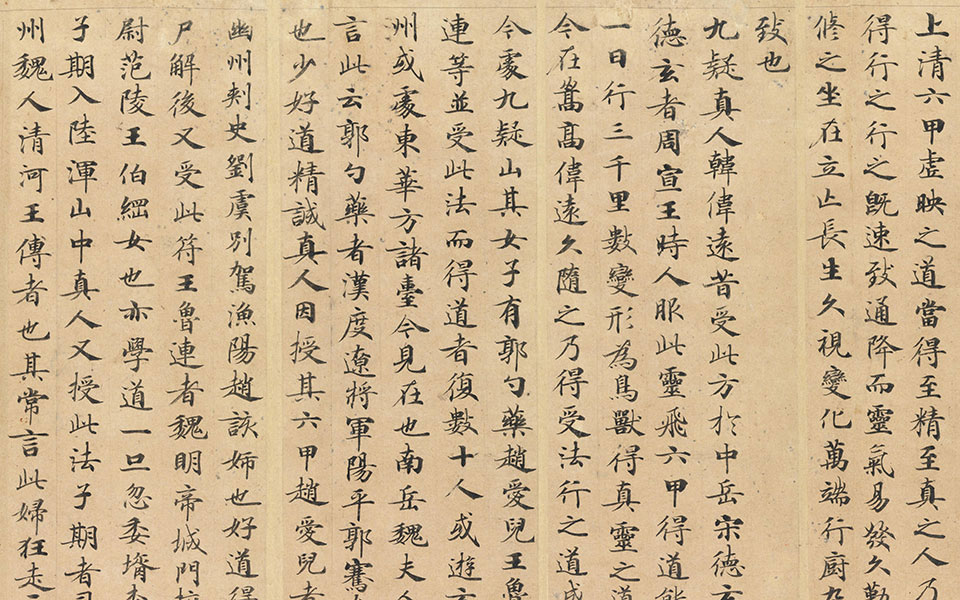 上清六甲虛映之道當得至精至真之人乃
得行之行之既速致通降而靈氣易發久勤
修之坐在立亡長生久視變化萬端行厨九
致也
九疑真人韓偉遠昔受此方於中岳宋德玄
德玄者周宣王時人服此靈飛六甲得道能
一日行三千里數變形為鳥獸得真靈之道
今在嵩高偉遠久隨之乃得受法行之道成
今處九疑山其女子有郭勺藥趙愛兒王魯
連等並受此法而得道者復數十人或遊玄
州或處東華方諸臺今見在也南岳魏夫人
言此云郭勺藥者漢度遼將軍陽平郭騫女
也少好道精誠真人因授其六甲趙愛兒者
幽州刺史劉虞別駕漁陽趙該姊也好道得
尸解後又受此符王魯連者魏明帝城門校
尉范陵王伯綱女也亦學道一旦忽委壻李
子期入陸渾山中真人又授此法子期者司
州魏人清河王傳者也其常言此婦狂走